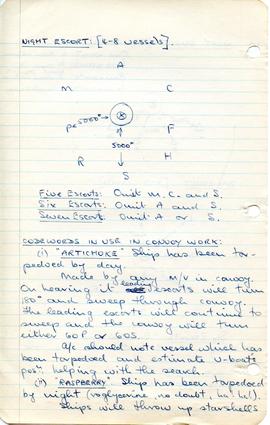 NIGHT ESCORT: [4-8 vessels].
A
M C
5000"
5000"
F
R H
S
Five Escorts: Omit M. C. and S.
Six Escorts: Omit A and S.
Seven Escort: Omit A or S.
CODEWORDS IN USE IN CONVOY WORK:
(i) "ARTICHOKE" Ship has been tor-
pedoed by day.
Made by any M/V in convoy.
On hearing it leading escorts will turn
180° and sweep through convoy.
The leading escorts will continue to
sweep and the convoy will turn
either 60P or 60S.
A/c should note vessel which has
been torpedoed and estimate U-boats
posn, helping with the search.
(ii) "RASPBERRY" Ship has been torpedoed
by night (voglycerine, no doubt, ha! ha!).
Ships will throw up starshells